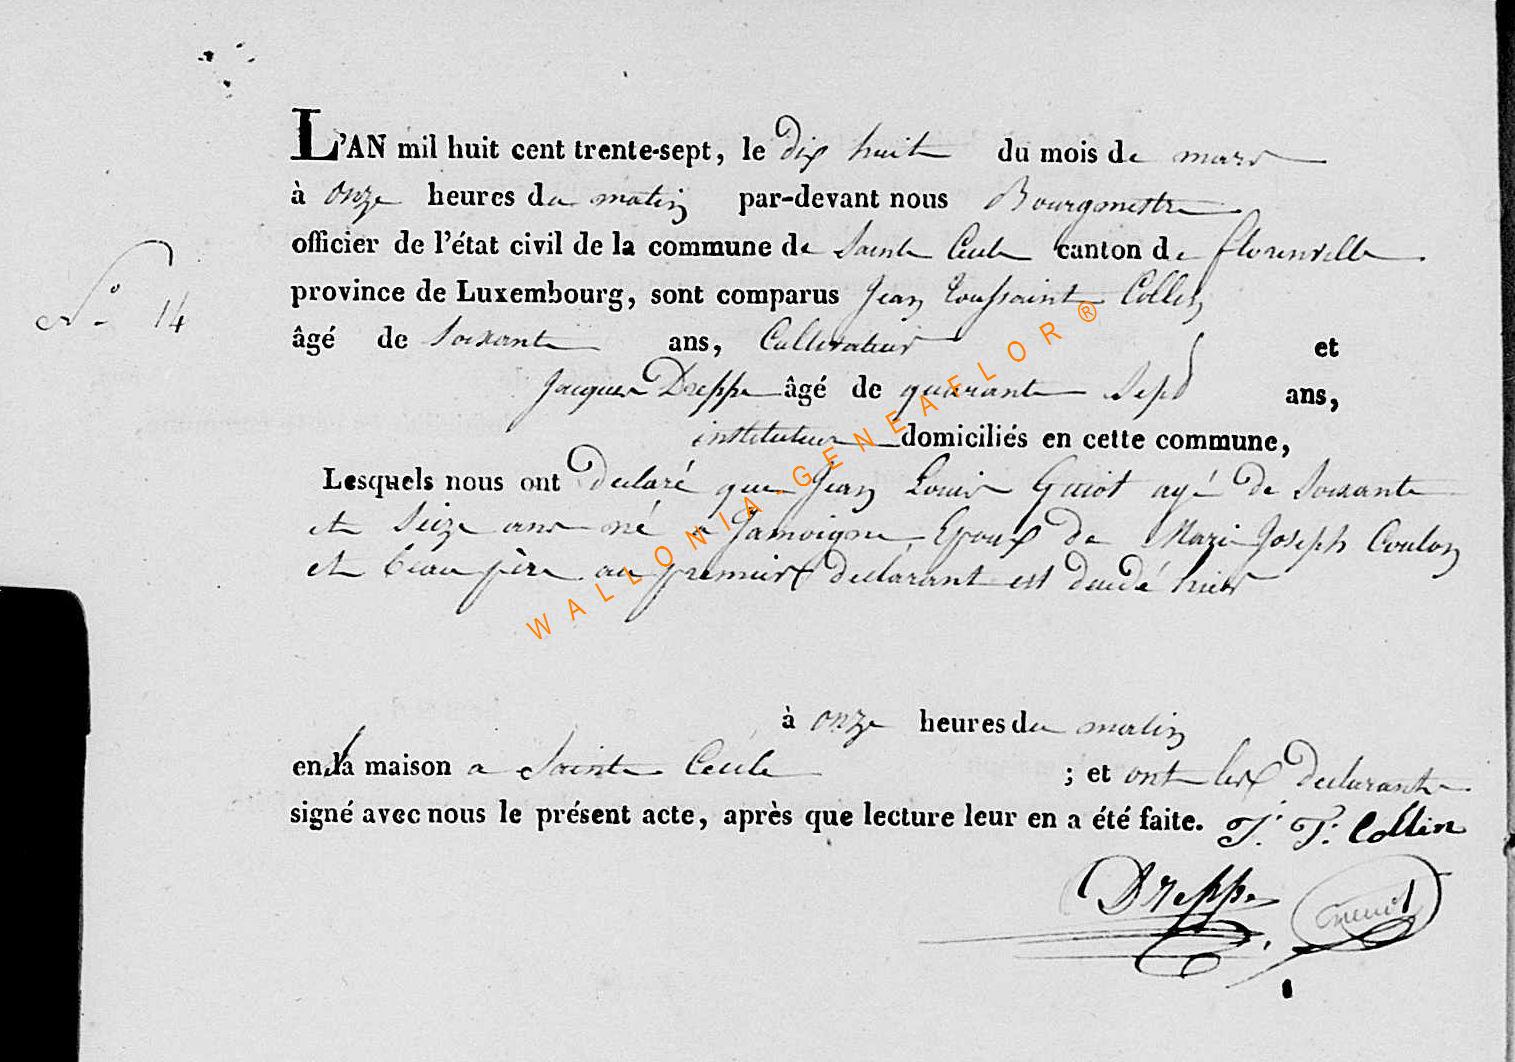 L'AN mil huit cent trente-sept, le dix huit du mois de mars
à onze heures du matin par-devant nous Bourgmestre
officier de l'état civil de la commune de Sainte Cecile canton de florenville
N° 14
province de Luxembourg, sont comparus Jean toussaint Collin
âgé de Soixante ans, Cultivateur et
Jacques Dreppe âgé de quarante Sept ans,
instituteur domiciliés en cette commune,
Lesquels nous ont declaré que Jean Louis Guiot agé de Soixante
et Seize ans né a Jamoigne, Epoux de Marie Joseph Coulon
et beau père au premier declarant est decedé hier
à onze heures du matin
en la maison a Sainte Cecile ; et ont les declarants
signé avec nous le présent acte, après que lecture leur en a été faite. J. T. Collin
Dreppe
WALLONIA-GENEAFLOR®